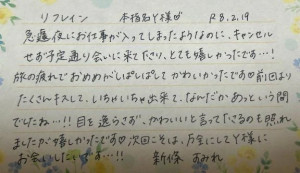 リフレイン 本指名Y様♡ R8.2.19
急遽夜にお仕事が入ってしまったようなのに、キャンセル
せず予定通り会いに来て下さり、とても嬉しかったです…!
旅の疲れでおめめがしぱしぱしてかわいかったです♡前回より
たくさんキスして、いちゃいちゃ出来て、なんだかあっという間
でしたね…!!目を逸らさず、かわいいと言って下さるのも照れ
ましたが嬉しかったです♡次回こそは、万全にしてY様に
お会いしたいです…!! 新條 すみれ